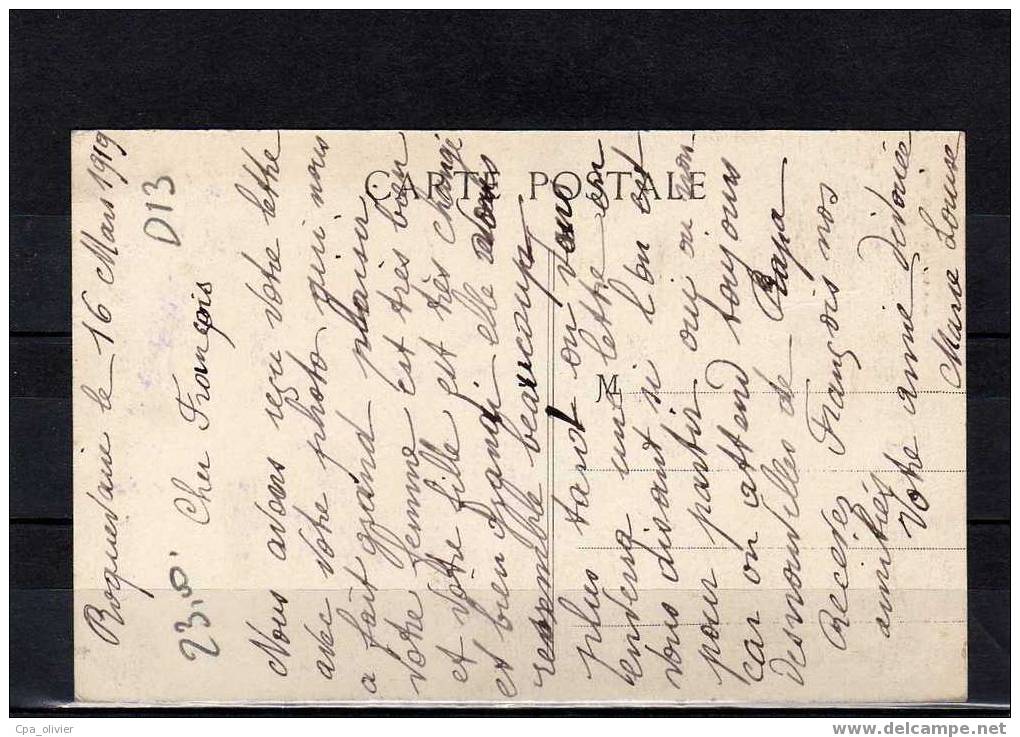 Roquevaire le 16 Mars 1919
D13
23,50
Cher François
CARTE POSTALE
M
Nous avons reçu votre lettre
avec votre photo qui nous
a fait grand plaisir
votre femme est très bien
et votre fille est très changé
est bien grandi elle vous
ressemble beaucoup
plus tard on vous
enverra une lettre en
vous disant si l'on est
pour partir oui ou non
car on attend toujours
des nouvelles de Papa
Recevez François nos
amitiés
Votre amie dévouée
Marie Louise
Cpa_olivier
www.delcampe.net